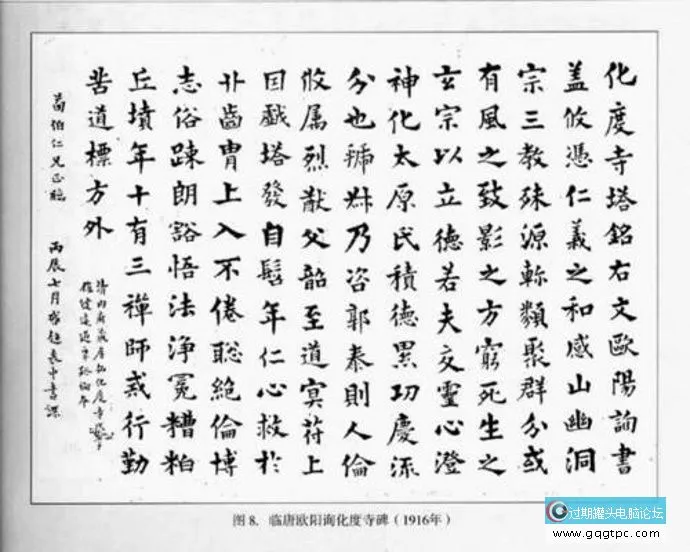 化度寺塔銘右文歐陽詢書
盖攸憑仁義之和感山幽洞
宗三教殊源軫類聚群分或
有風之致影之方窮死生之
玄宗以立德若夫交靈心澄
神化太原氏積德累功慶流
分也虢叔乃咨郭泰則人倫
攸属烈猷父韶至道冥苻上
因戲塔發自髫年仁心救於
丱齒胄上入不倦聡絶倫博
志俗踈朗豁悟法淨冤糟粕
丘墳年十有三禪師戒行勤
苦道標方外
伯仁兄正臨
丙辰七月
图8. 临唐欧阳询化度寺碑（1916年）
过期罐头电脑论坛
www.gqgtpc.com